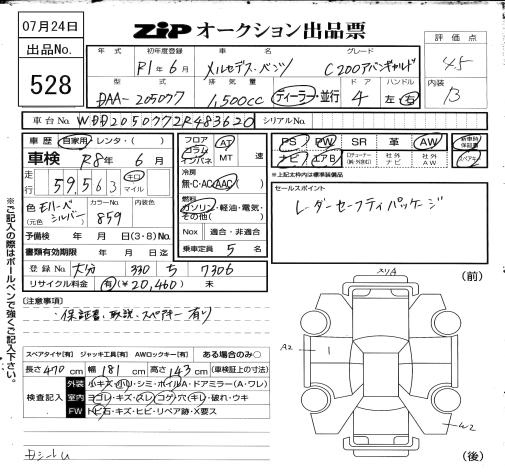 07月24日
ZIP オークション出品票
出品No.
528
年式 初年度登録 車名 グレード
R1年6月 メルセデス・ベンツ C200アバンギャルド
型式 排気量 ドア ハンドル
DAA-205077 1,500cc ディーラー・並行 4 左 右
評価点
4.5
内装
B
車台No. WDD2050772R483620 シリアルNo.
車歴 自家用・レンタ( )
車検 R8年6月
走行 59,563 キロ マイル
色 元色 モハーベシルバー カラーNo. 859 内装色
予備検 年 月 日(3・8)No.
書類有効期限 年 月 日迄
登録No. 大分 330 ち 7306
リサイクル料金 有(¥20,460) 未
フロア コラム インパネ AT MT 速
冷房 無・C・AC・AAC
燃料 ガソリン・軽油・電気・その他( )
Nox 適合・非適合
乗車定員 5名
PS PW SR 革 AW 新車時保証書
ナビ エアB 社外ナビ 社外AW スペアキー
※上記太枠内は標準装備品
セールスポイント
レーダーセーフティパッケージ
※ご記入の際はボールペンで強くご記入下さい。
[注意事項]
・保証書、取説、スペアキー有り
スペアタイヤ[有] ジャッキ工具[有] AWロックキー[有] ある場合のみ○
長さ470cm 幅181cm 高さ143cm (車検証上の寸法)
検査記入
外装 小キズ・小凹・シミ・ホイルA・ドアミラー(A・ワレ)
室内 ヨゴレ・キズ・スレ・コゲ・穴・キレ・破れ・ウキ
FW トビ石・キズ・ヒビ・リペア跡・X要ス
(前)
スリA
A2
1
W2
(後)